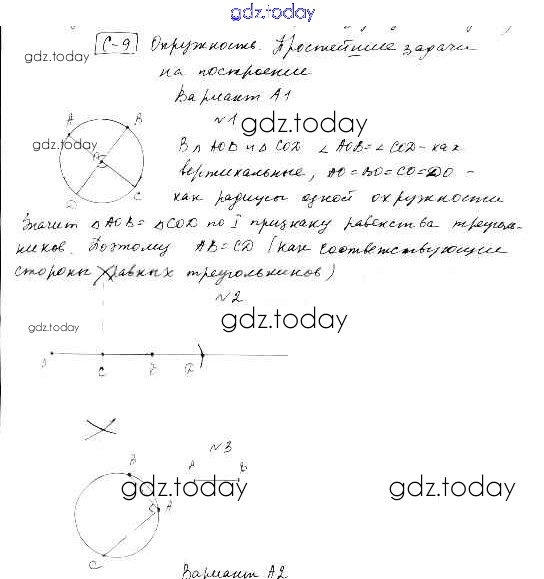 gdz.today
С-9 Окружность. Простейшие задачи
gdz.today
на построение
Вариант А1
№1 gdz.today
A B
gdz.today
В △ AOB и △ COD ∠ AOB = ∠ COD - как
вертикальные, AO = BO = CO = DO -
D C
как радиусы одной окружности
Значит △ AOB = △ COD по I признаку равенства треуголь-
ников. Поэтому AB = CD (как соответствующие
стороны равных треугольников)
№2
gdz.today
gdz.today
C
№3
B A B
gdz.today gdz.today
A
C
Вариант А2